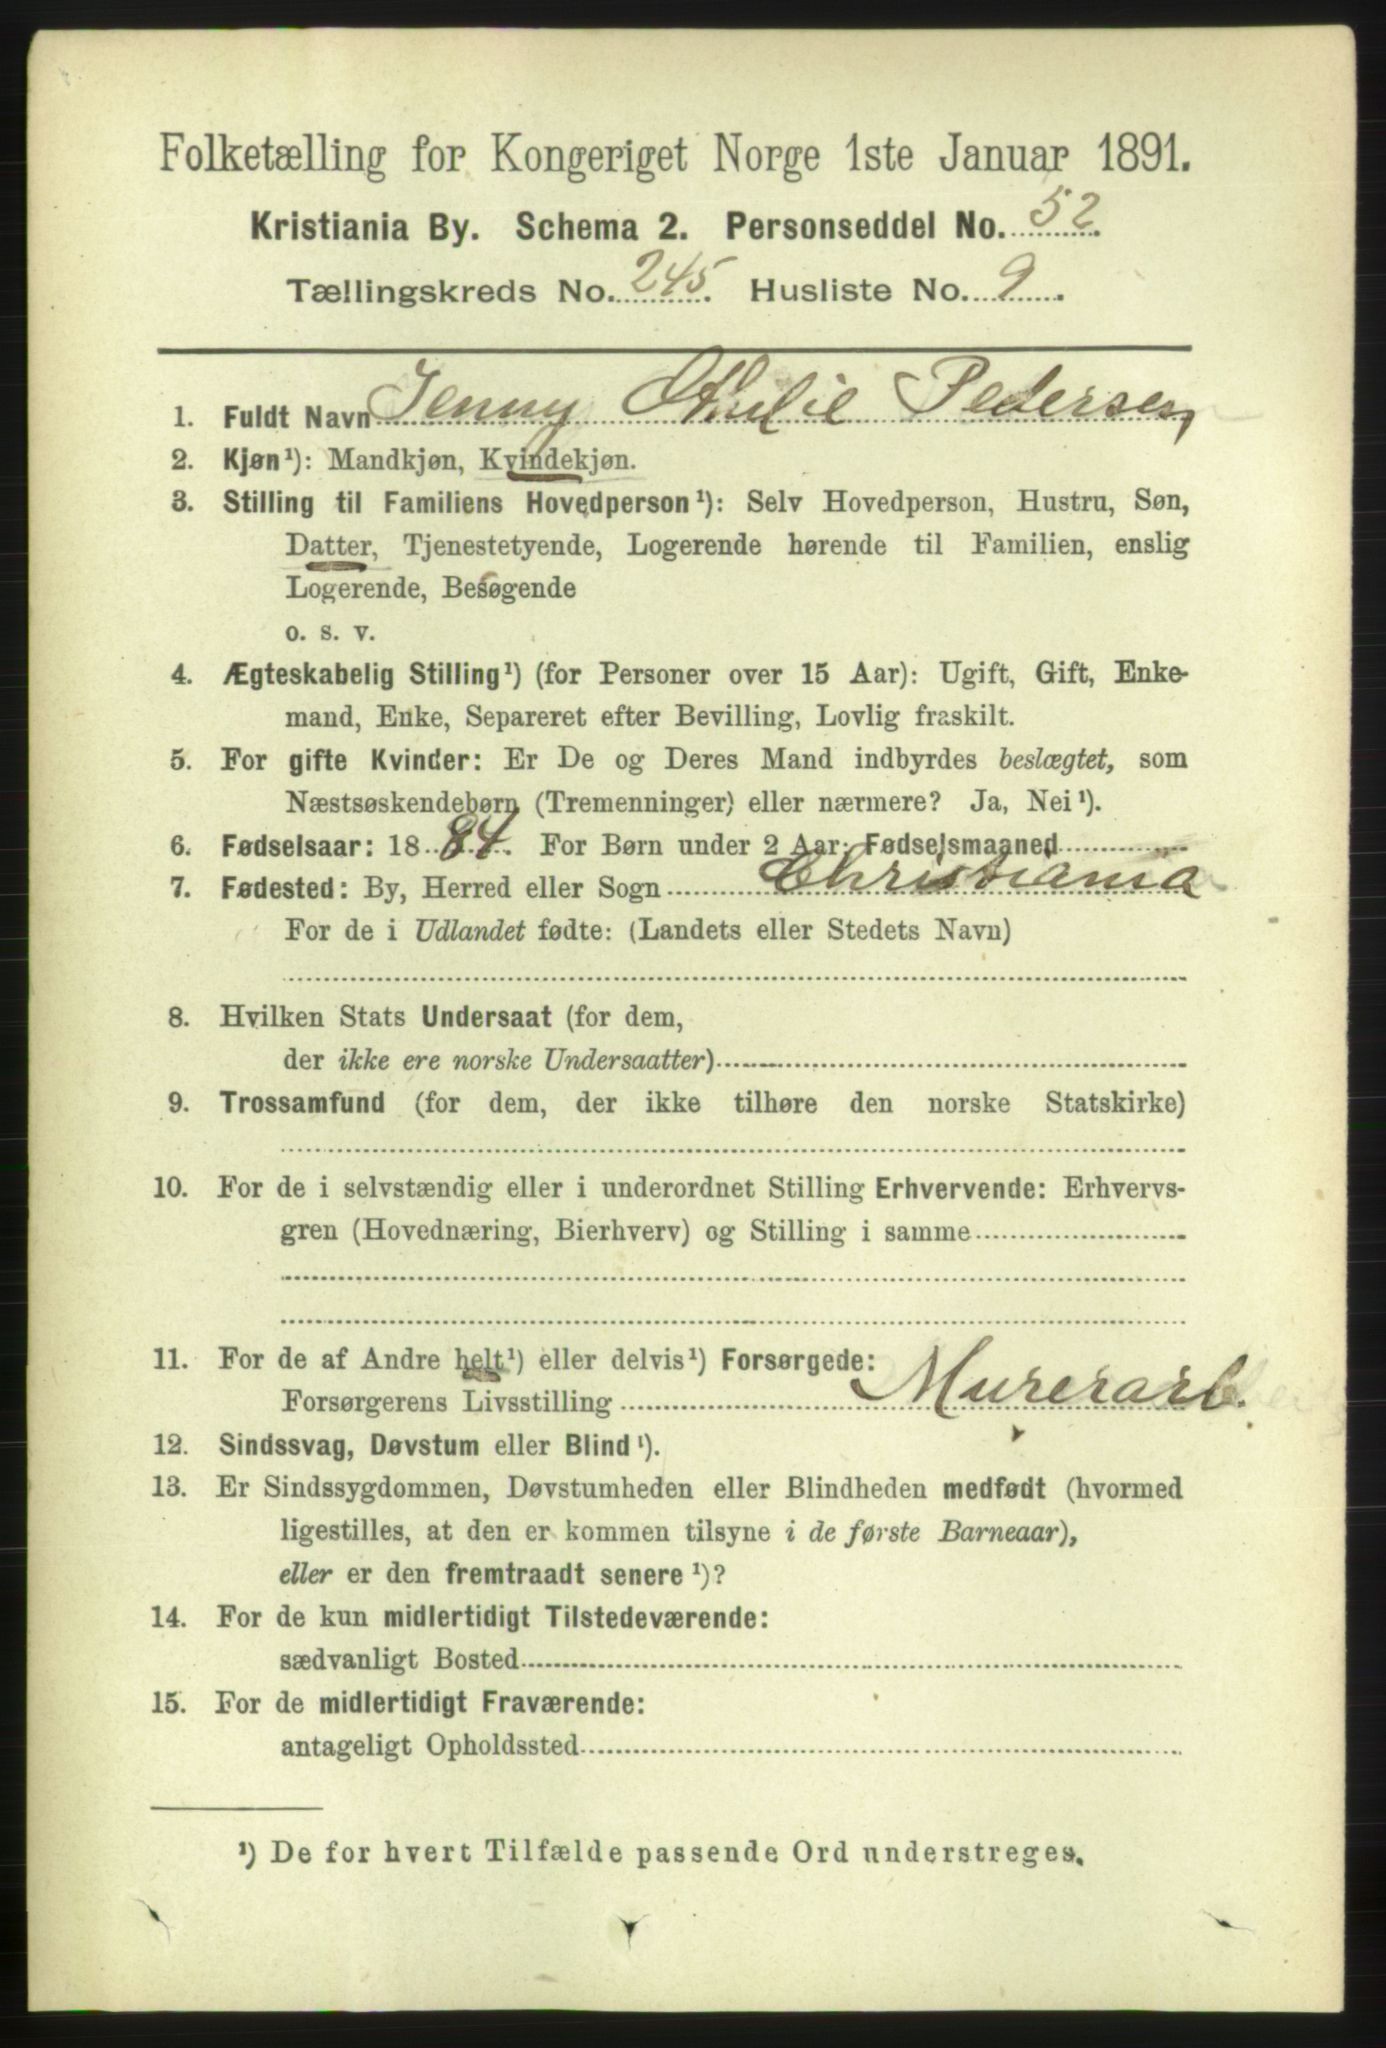 Folketælling for Kongeriget Norge 1ste Januar 1891.
Kristiania By. Schema 2. Personseddel No. 52
Tællingskreds No. 245. Husliste No. 9.
1. Fuldt Navn Jenny Pedersen
2. Kjøn¹): Mandkjøn, Kvindekjøn.
3. Stilling til Familiens Hovedperson¹): Selv Hovedperson, Hustru, Søn,
Datter, Tjenestetyende, Logerende hørende til Familien, enslig
Logerende, Besøgende
o. s. v.
4. Ægteskabelig Stilling¹) (for Personer over 15 Aar): Ugift, Gift, Enke-
mand, Enke, Separeret efter Bevilling, Lovlig fraskilt.
5. For gifte Kvinder: Er De og Deres Mand indbyrdes beslægtet, som
Næstsøskendebørn (Tremenninger) eller nærmere? Ja, Nei¹).
6. Fødselsaar: 1884. For Børn under 2 Aar: Fødselsmaaned
7. Fødested: By, Herred eller Sogn Christiania
For de i Udlandet fødte: (Landets eller Stedets Navn)
8. Hvilken Stats Undersaat (for dem,
der ikke ere norske Undersaatter)
9. Trossamfund (for dem, der ikke tilhøre den norske Statskirke)
10. For de i selvstændig eller i underordnet Stilling Erhvervende: Erhvervs-
gren (Hovednæring, Bierhverv) og Stilling i samme
11. For de af Andre helt¹) eller delvis¹) Forsørgede:
Forsørgerens Livsstilling Murerarb.
12. Sindssvag, Døvstum eller Blind¹).
13. Er Sindssygdommen, Døvstumheden eller Blindheden medfødt (hvormed
ligestilles, at den er kommen tilsyne i de første Barneaar),
eller er den fremtraadt senere¹)?
14. For de kun midlertidigt Tilstedeværende:
sædvanligt Bosted
15. For de midlertidigt Fraværende:
antageligt Opholdssted
¹) De for hvert Tilfælde passende Ord understreges.